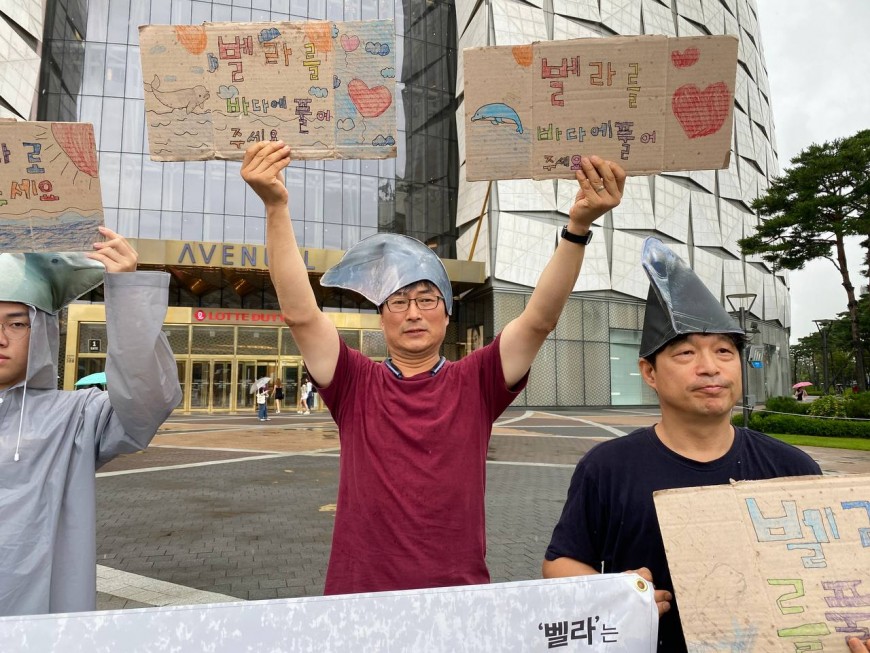 벨라를
바다에풀어
주세요
벨라를
바다에풀어
주세요
로
세요
AVENUEL
LOTTE DUTY
벨라를
'벨라'는